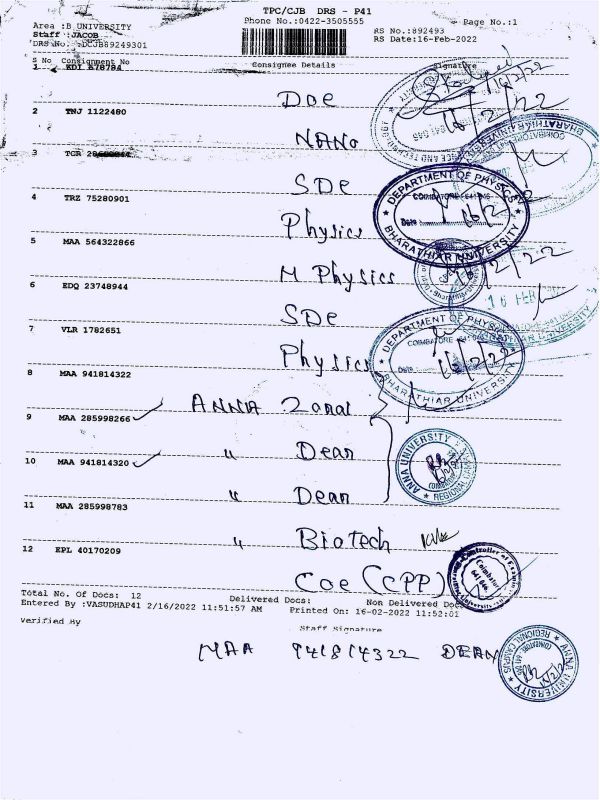 TPC/CJB DRS - P41
Area :B UNIVERSITY Phone No.:0422-3505555 Page No.:1
Staff :JACOB RS No.:892493
DRS No. :DCJB89249301 RS Date:16-Feb-2022
S No Consignment No Consignee Details Signature
1 KDI 678784
Doe
2 TNJ 1122480
NANO
3 TCR
SDE
4 TRZ 75280901
Physics
5 MAA 564322866
M Physics
6 EDQ 23748944
SDE
7 VLR 1782651
Physics
8 MAA 941814322
ANNA Zonal
9 MAA 285998266
" Dean
10 MAA 941814320
" Dean
11 MAA 285998783
" Biotech
12 EPL 40170209
Coe (CPP)
DEPARTMENT OF PHYSICS
COIMBATORE - 641 046
Date
16/2/22
BHARATHIAR UNIVERSITY
16 FEB
DEPARTMENT OF PHYSICS
COIMBATORE - 641 046
Date
16/2/22
BHARATHIAR UNIVERSITY
ANNA UNIVERSITY
REGIONAL CAMPUS
Controller of Examinations
Coimbatore
641 046
Total No. Of Docs: 12 Delivered Docs: Non Delivered Docs:
Entered By :VASUDHAP41 2/16/2022 11:51:57 AM Printed On: 16-02-2022 11:52:01
Verified By Staff Signature
MAA 941814322 DEAN
ANNA UNIVERSITY
REGIONAL CAMPUS